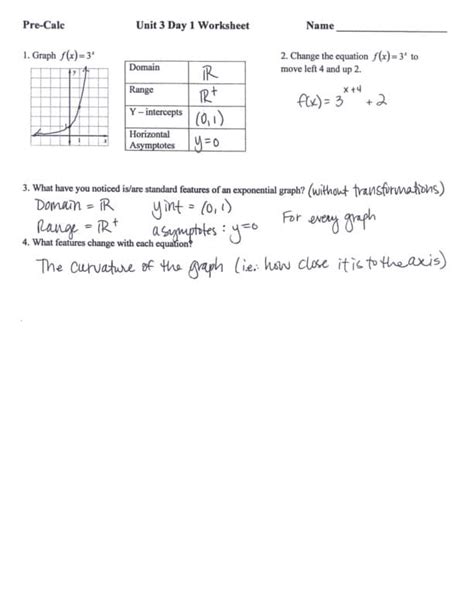 Pre-Calc Unit 3 Day 1 Worksheet Name
1. Graph f(x)=3ˣ
y
1
x
Domain ℝ
Range ℝ⁺
Y – intercepts (0,1)
Horizontal Asymptotes y=0
2. Change the equation f(x)=3ˣ to
move left 4 and up 2.
f(x) = 3ˣ⁺⁴ + 2
3. What have you noticed is/are standard features of an exponential graph? (without transformations)
Domain = ℝ yint = (0,1)
Range = ℝ⁺ asymptotes : y=0 For every graph
4. What features change with each equation?
The curvature of the graph (ie: how close it is to the axis)